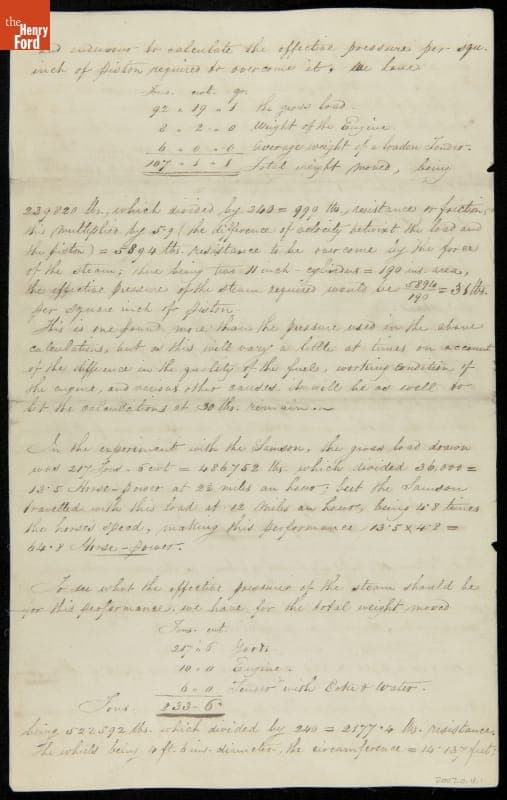 the
Henry
Ford
and endeavour to calculate the effective pressure per squ.
inch of piston required to overcome it, we have
Tns. cwt. qr.
92 " 19 " 1 the gross load.
8 " 2 " 0 Weight of the Engine.
6 " 0 " 0 average weight of a loaden Tender.
107 " 1 " 1 Total weight moved, being
239820 lbs, which divided by 240 = 999 lbs, resistance or friction,
this multiplied by 5.9 (the difference of velocity betwixt the load and
the piston) = 5894 lbs. resistance to be overcome by the force
of the steam; there being two 11 inch-cylinders = 190 ins. area,
the effective pressure of the steam required would be 5894/190 = 31 lbs.
per square inch of piston.
This is one pound more than the pressure used in the above
calculation, but as this will vary a little at times on account
of the difference in the quality of the fuels, working condition of
the engine, and various other causes it will be as well to
let the calculations at 30 lbs. remain.
In the experiment with the Samson, the gross load drawn
was 217 Tons - 6 cwt = 486752 lbs. which divided 36,000 =
13.5 Horse-power at 2½ miles an hour; but the Samson
travelled with this load at 12 Miles an hour, being 4.8 times
the horses speed, making this performance 13.5 x 4.8 =
64.8 Horse-power.
To see what the effective pressure of the steam should be
for this performance, we have for the total weight moved
Tns. cwt.
217 " 6 Goods.
10 " 0 Engine.
6 " 0 Tender with Coke & Water.
Tons. 233 - 6.
being 522592 lbs. which divided by 240 = 2177.4 lbs. resistance.
The wheels being 4 ft. 6 ins. diameter, the circumference = 14.137 feet,